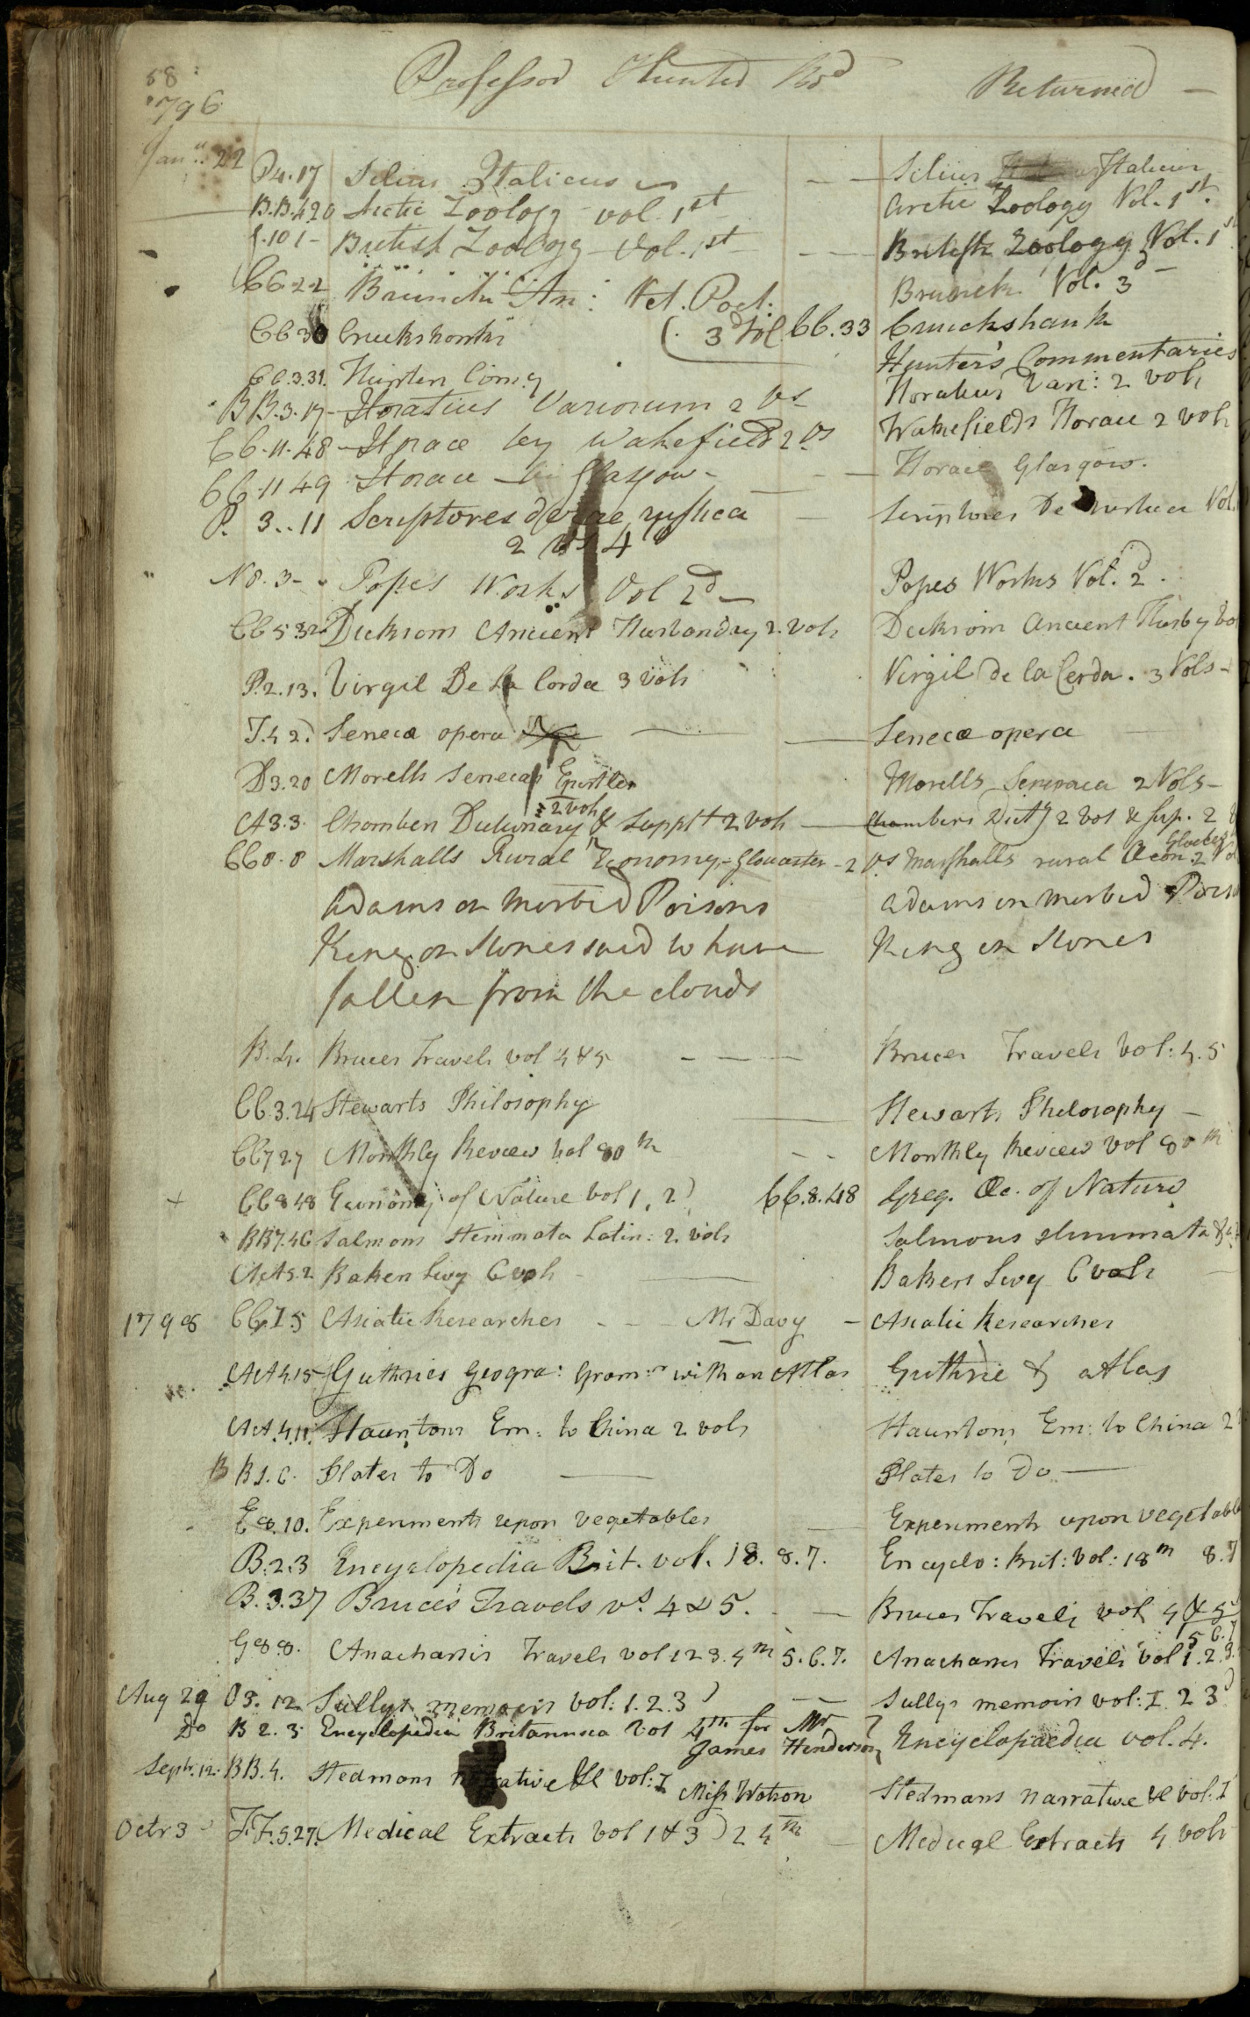 58
1796
Professor Hunter Rd Returned —
Jany. 22 P4.17 Silius Italicus — Silius Italicus
B.B.4.20 Arctic Zoology vol. 1st Arctic Zoology Vol. 1st.
f.10 1 - British Zoology - Vol. 1st — British Zoology Vol. 1st
CC 2 2 Brunchi An: Vet. Poet: Brunck Vol. 3d
CC 3 Cruikshanks (3d Vol CC.33 Cruickshank
CC.3.31. Hunters Comy Hunter's Commentaries
BB.3.17 - Horatius Variorum 2 Vs Horatius Vari: 2 vols
CC.11.48 - Horace by Wakefield 2 Vs Wakefields Horace 2 vols
CC.11 49 Horace - Glasgow - — Horace Glasgow.
P. 3..11 Scriptores de re rustica — Scriptores De rustica Vol.
2 Vs 4
N8.3- Popes Works Vol 2d — Popes Works Vol. 2d.
CC 5 32 Dicksons Ancient Husbandry 2. vols Dickson Ancient Husby
P.2.13. Virgil De La Corda 3 vols Virgil de la Cerda. 3 Vols -
T.4 2. Seneca opera — Senecæ opera
D3.20 Morells Senecas Epistles Morells Seneca 2 Vols -
2 vols
A3.3. Chambers Dictionary & Supplt 2 vols — Chambers Dicty 2 Vol & Sup. 2
CC8.8 Marshalls Rural Economy - Gloucester - 2 Vs Marshalls rural Œcon. 2
Adams on Morbid Poisons Adams on Morbid
King on Stones said to have King on Stones
fallen from the clouds
B.4. Bruces Travels vol 4 & 5 — Bruces Travels Vol: 4.5
CC.3.24 Stewarts Philosophy — Stewarts Philosophy —
CC727 Monthly Review Vol 80th — Monthly Review Vol 80th
+ CC848 Economy of Nature Vol 1, 2 CC.8.48 Greg. Œc. of Nature
BB7.46 Salmons Stemmata Latin: 2 vols Salmons Stemmata
AA5.2 Bakers Livy 6 vols — Bakers Livy 6 vols
1798 CC 1 5 Asiatic Researches - - - Mr Davy — Asiatic Researches
AA4.15 Guthries Geogra: Gramr with an Atlas Guthrie & atlas
AA.4.11. Stauntons Em: to China 2 vols Stauntons Em: to China 2
B B1.6. Plates to Do — Plates to Do —
E8.10. Experiments upon vegetables — Experiments upon vegetables
B.2.3 Encyclopedia Brit. vol. 18. 8. 7. Encyclo: Brit: vol: 18th 8.7
B.3.37 Bruce's Travels vs. 4 & 5. — Bruces Travels vol 4 & 5
5 6.7
G8.8. Anacharsis Travels vol 1 2 3. 4th 5. 6. 7. Anacharsis Travels Vol 1. 2. 3.
Aug 29 O3. 12 Sullys memoirs vol: 1. 2. 3 — Sullys memoirs vol: 1. 2 3
Do B 2. 3 Encyclopedia Britannica Vol 4th for Mr Encyclopædia vol. 4.
James Henderson
Septr. 12: BB.4. Stedmans narrative &c vol: 1 Miss Watson Stedmans narrative &c vol: 1
Octr 3 F.F.5.27. Medical Extracts Vol 1 & 3 2 4th — Medical Extracts 4 vols